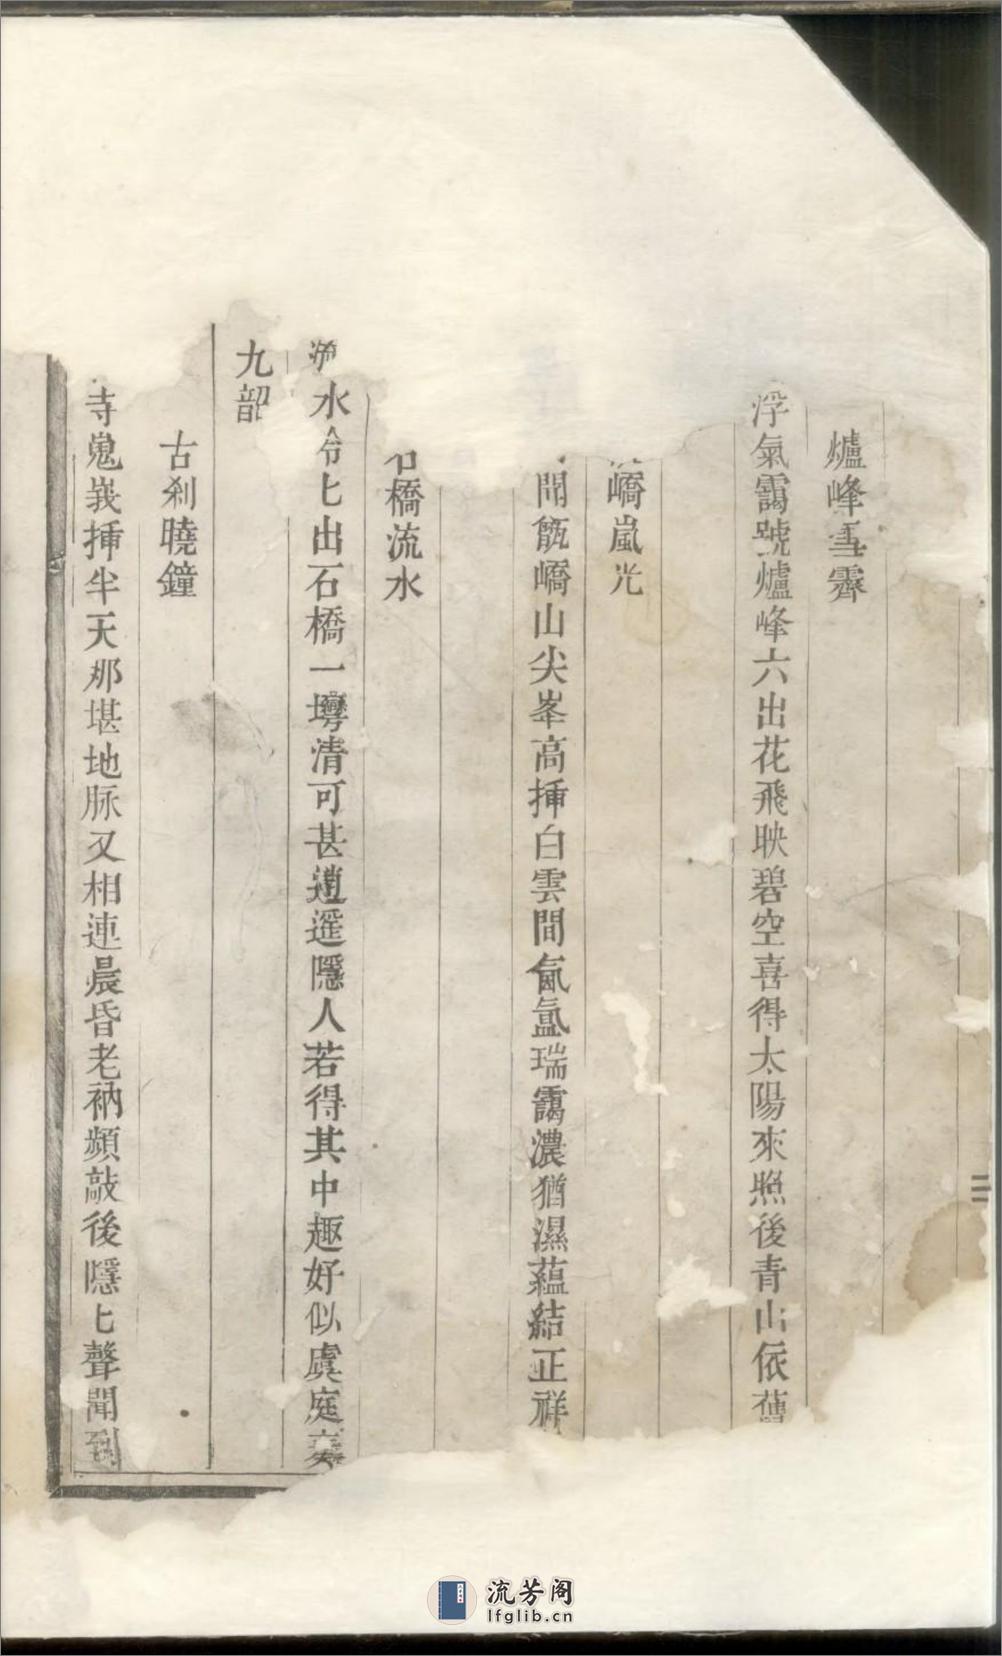 爐峰雪霽
浮氣靄號爐峰六出花飛映碧空喜得太陽來照後青山依舊
嶠嵐光
開甑嶠山尖峯高揷白雲間氤氳瑞靄濃猶濕蘊結正祥
石橋流水
水冷匕出石橋一灣清可甚逍遥隱人若得其中趣好似虞庭奏
九韶
古刹曉鐘
寺嵬峩揷半天那堪地脉又相連晨昏老衲頻敲後隱匕聲聞到
二
流芳阁
lfglib.cn